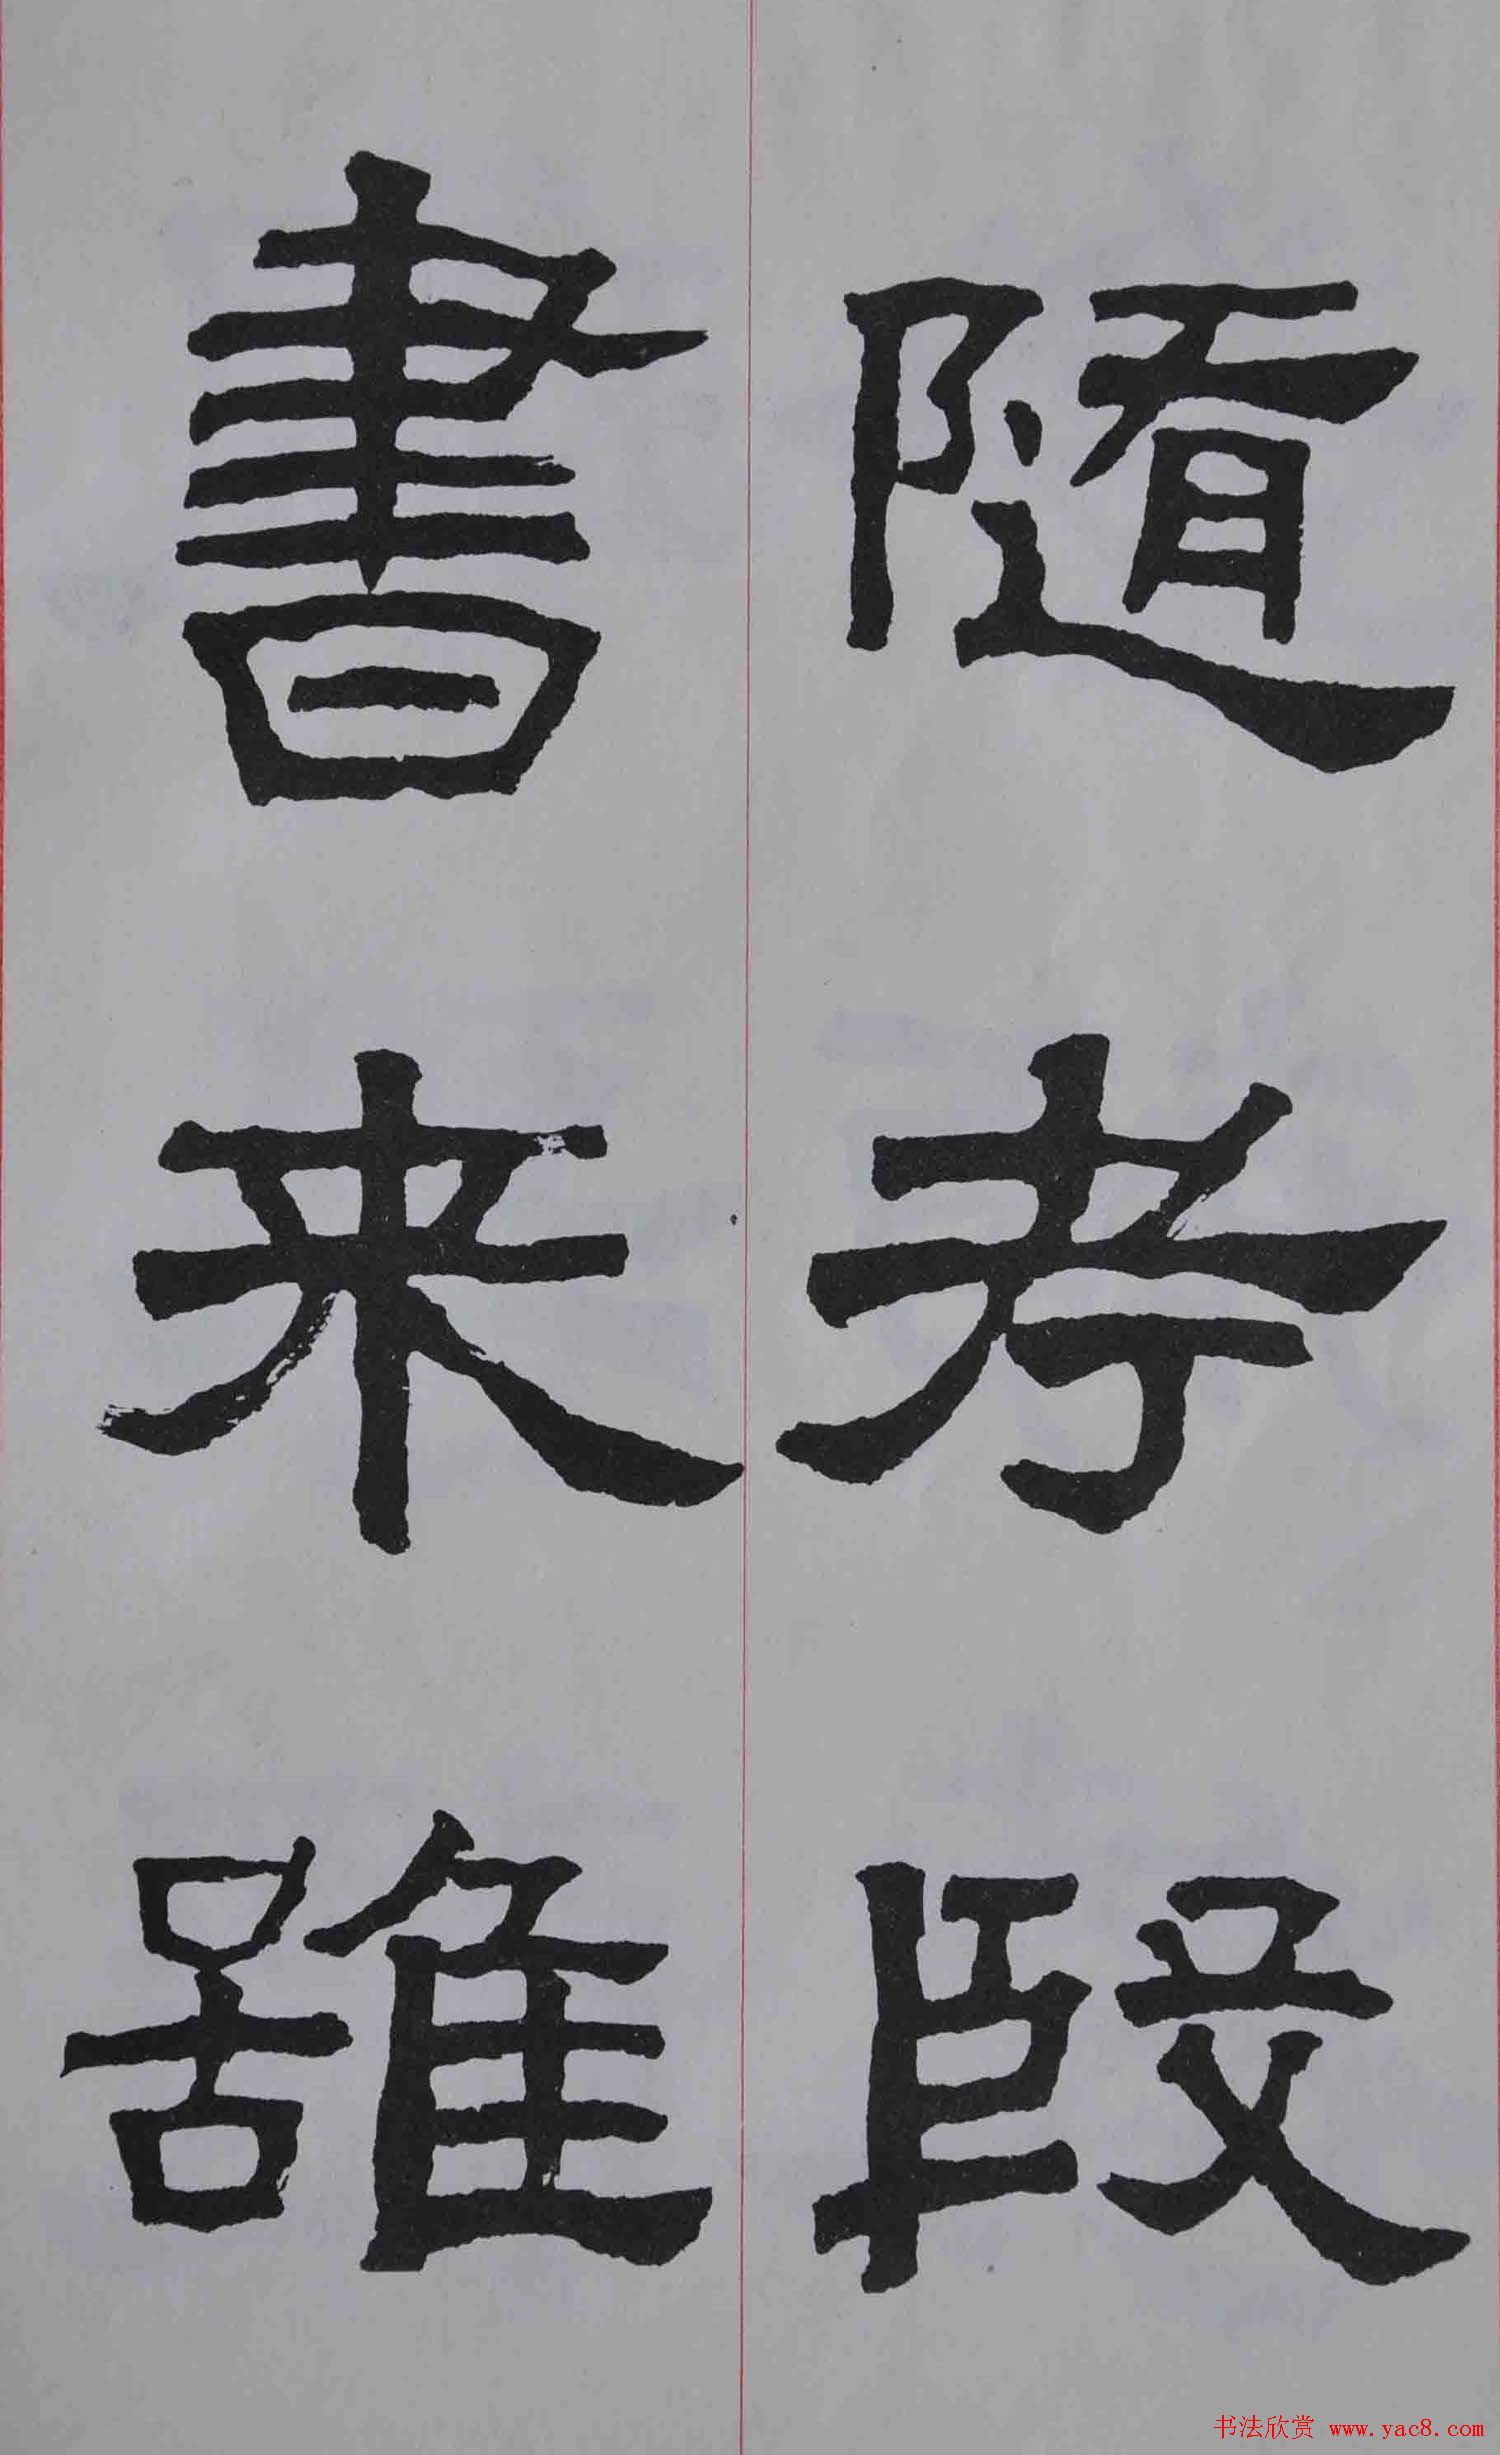 隨考段
書来雖
书法欣赏 www.yac8.com